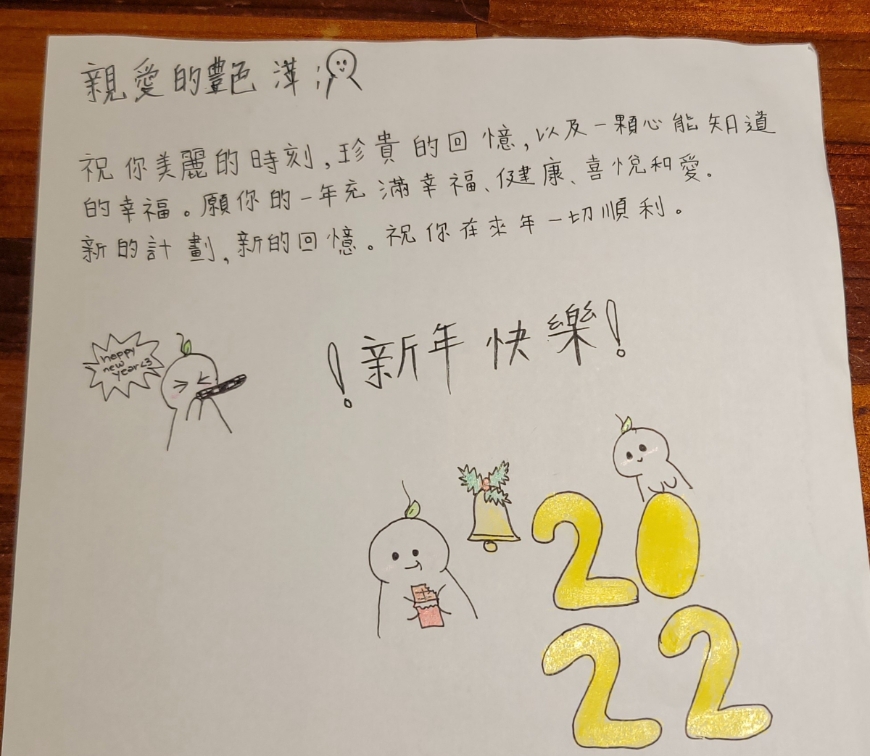 親愛的艷萍
祝你美麗的時刻,珍貴的回憶,以及一顆心能知道
的幸福。願你的一年充滿幸福、健康、喜悅和愛.
新的計劃,新的回憶。祝你在來年一切順利。
happy
new
year<3
!新年快樂!
20
22